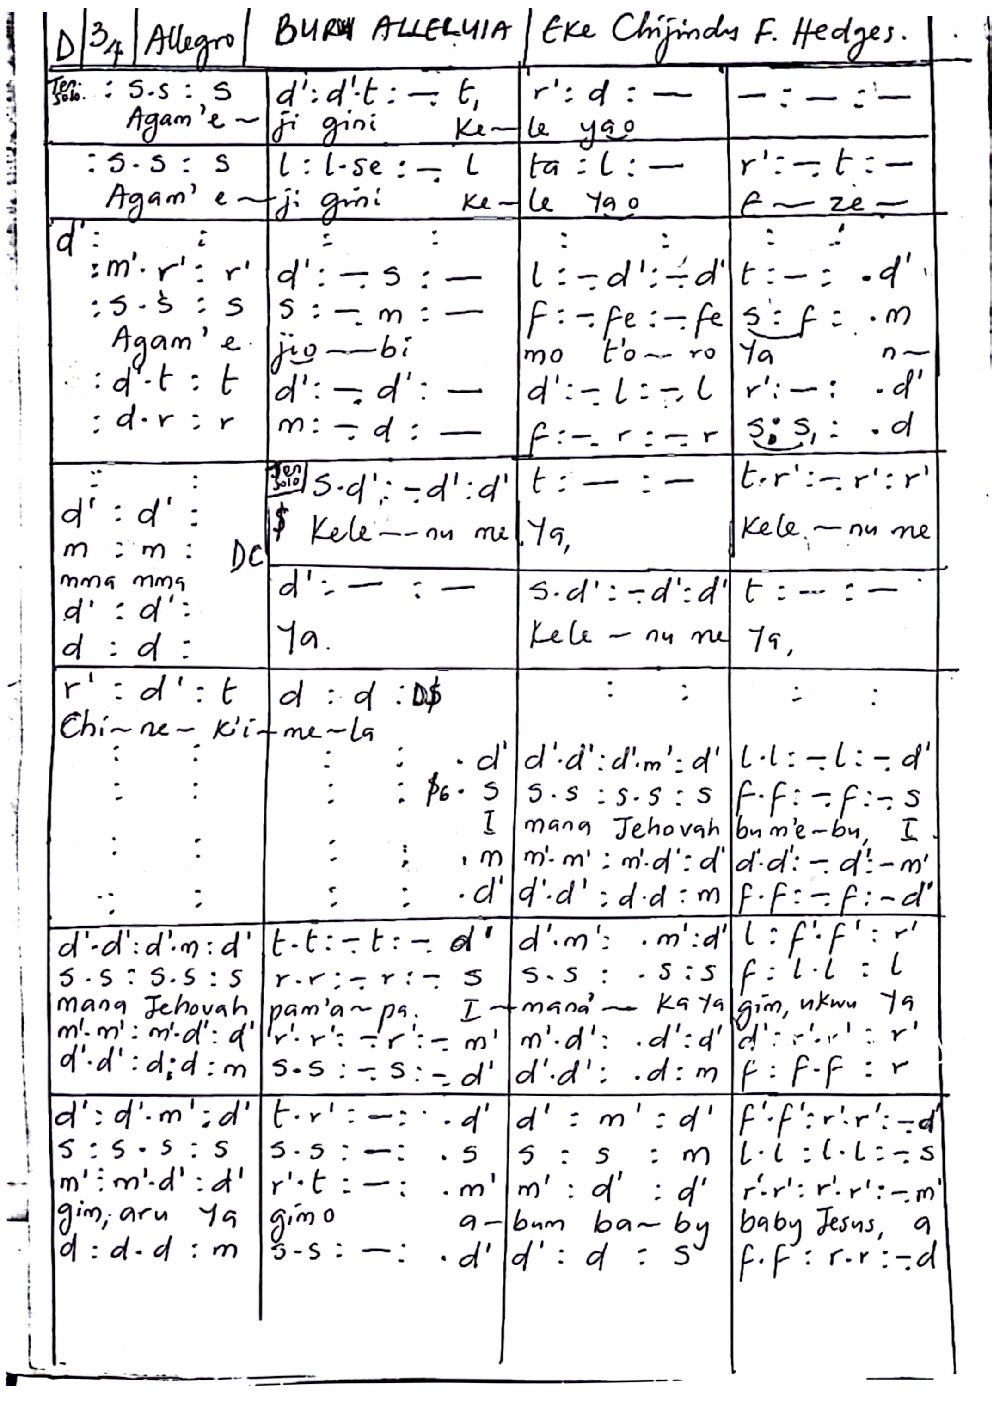 D 3/4 Allegro BURU ALLELUIA Eke Chijindu F. Hedges.
Ten. Solo. : s.s : s | d' : d'.t : -. t, | r' : d : — | — : — : —
Agam'e ~ ji gini Ke~ le yao
: s.s : s | l : l.se : -. l | ta : l : — | r' : -. t : —
Agam' e ~ ji gini Ke~ le Yao E ~ ze ~
d' : : | : : | : : | : :
: m'. r' : r' | d' : -. s : — | l : -. d' : -. d' | t : — : . d'
: s . s : s | s : -. m : — | f : -. fe : -. fe | s : f : . m
Agam'e jio — bi mo t'o ~ ro Ya n ~
: d'.t : t | d' : -. d' : — | d' : -. l : -. l | r' : — : . d'
: d.r : r | m : -. d : — | f : -. r : -. r | s : s, : . d
: : | Ten Solo s.d' : -. d' : d' | t : — : — | t.r' : -. r' : r'
d' : d' : $ Kele — nu me Ya, Kele ~ nu me
m : m : DC
mma mma | d' : — : — | s.d' : -. d' : d' | t : — : —
d' : d' : Ya. Kele ~ nu me Ya,
d : d :
r' : d' : t | d : d : D$ | : : | : :
Chi ~ ne ~ k'i ~ me ~ la
: : | : : . d' | d'.d' : d'.m' : d' | l.l : -. l : -. d'
: : | : : $6 . s | s.s : s.s : s | f.f : -. f : -. s
I mana Jehovah bu m'e ~ bu, I
: : | : : . m | m'.m' : m'.d' : d' | d'.d' : -. d' : - m'
: : | : : . d' | d'.d' : d.d : m | f.f : -. f : - d'
d'.d' : d'.m : d' | t.t : -. t : -. d' | d'.m' : . m' : d' | l : f'.f' : r'
s.s : s.s : s | r.r : -. r : -. s | s.s : . s : s | f : l.l : l
mana Jehovah pam'a ~ pa. I ~ mana' — Ka Ya gim, ukwu Ya
m'.m' : m'.d' : d' | r'.r' : -. r' : -. m' | m'.d' : . d' : d' | d' : r'.r' : r'
d'.d' : d.d : m | s.s : -. s : -. d' | d'.d' : . d : m | f : f.f : r
d' : d'.m' : d' | t.r' : — : . d' | d' : m' : d' | f'.f' : r'.r' : -. d'
s : s.s : s | s.s : — : . s | s : s : m | l.l : l.l : -. s
m' : m'.d' : d' | r'.t : — : . m' | m' : d' : d' | r'.r' : r'.r' : -. m'
gim, aru Ya gimo a ~ bum ba ~ by baby Jesus, a
d : d.d : m | s.s : — : . d' | d' : d : s | f.f : r.r : -. d